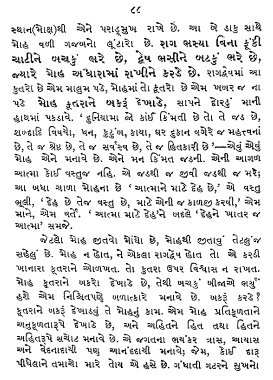 ૮૮
સ્થાન(મોક્ષ)થી એને પરાઙ્મુખ રાખે છે. આ બે ડાકુ સાથે
મોહ વળી ગજબનો લૂંટારો છે. રાગ ભસ્યા વિના ફૂંકી
ચાટીને બચકું ભરે છે, દ્વેષ ભસીને બટકું ભરે છે,
જ્યારે મોહ અંધારામાં રાખીને કરડે છે. રાગદ્વેષમાં આ
કુતરો છે એમ માલુમ પડે, મોહમાં તો કૂતરો છે એમ ખબર જ ના
પડે મોહ કૂતરાને બકરૂં દેખાડે, સાપને દોરડું માની
હાથમાં પકડાવે. ‘દુનિયામાં જો કાંઈ કિંમતી હોય, તો તે જડ છે,
શબ્દાદિ વિષયો, ધન, કુટુંબ, કાયા, ઘર દુકાન વગેરે જ મહત્ત્વનાં
છે, તે જ શ્રેષ્ઠ છે, તે જ સર્વસ્વ છે, તે જ હિતકારી છે’—એવું એવું
મોહ એને મનાવે છે. એને મન કિંમત જડની. એની આગળ
આત્મા કોઈ વસ્તુજ નહિ. એ જડથી જ જીવી જડથી જ મરે;
આ બધા ચાળા મોહના છે ‘આત્માને માટે દેહ છે,’ એ વસ્તુ
ભૂલી, ‘દેહ છે તેજ વસ્તુ છે, માટે એની જ કાળજી કરવી,’ એમ
માને, એમ વર્તે. ‘આત્મા માટે દેહ’ને બદલે ‘દેહને ખાતર જ
આત્મા’ સમજે.
જેટલો મોહ જીતવો મોંઘો છે, મોહથી જીતાવું તેટલુંજ
સહેલું છે. મોહ ન હોત, ને એકલા રાગદ્વેષ હોત તો એ કરડી
ખાનારા કુતરાને ઓળખત. તો કુતરા ઉપર વિશ્વાસ ન રાખત.
મોહ કૂતરાને બકરો દેખાડે છે, તેથી બચકાં ખીજાએ ભર્યું
હશે એમ નિશ્ચિતપણે બળાત્કારે મનાવે છે. બકરૂં કરડે?
કુતરાને બકરૂં દેખાડવું તે મોહનું કામ. એમ મોહ પ્રતિકૂળતાને
અનુકૂળતારૂપે દેખાડે છે, અને અહિતને હિત તથા હિતને
અહિતરૂપે સચોટ મનાવે છે. એ જગતના ભયંકર ત્રાસ, આયાસ
અને વેદનાદાયી પણ આનંદદાયી મનાવે; જેમ, કોઈ દારૂ
પીધેલાને તમાચો મારે તોય એ હસે છે. ગંધાતી ગટરને સુખનો